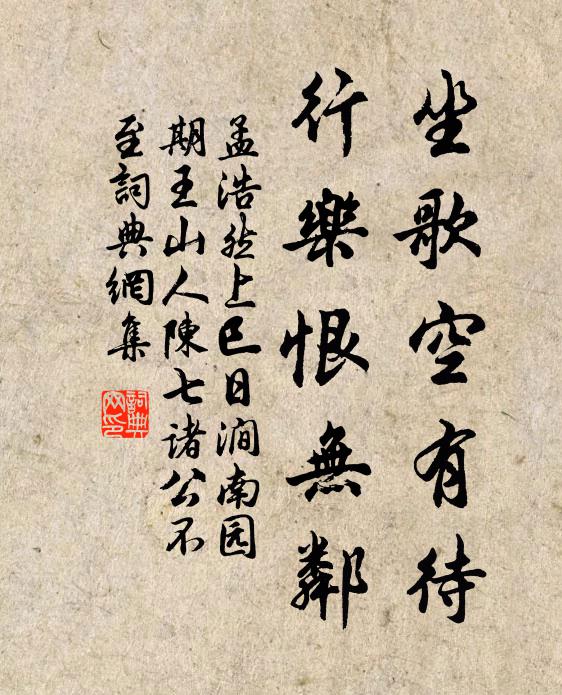 坐歌空有待
行樂恨無鄰
孟浩然上巳日澗南园
期王山人陳七諸公不
至詞典網集
詞典
网印